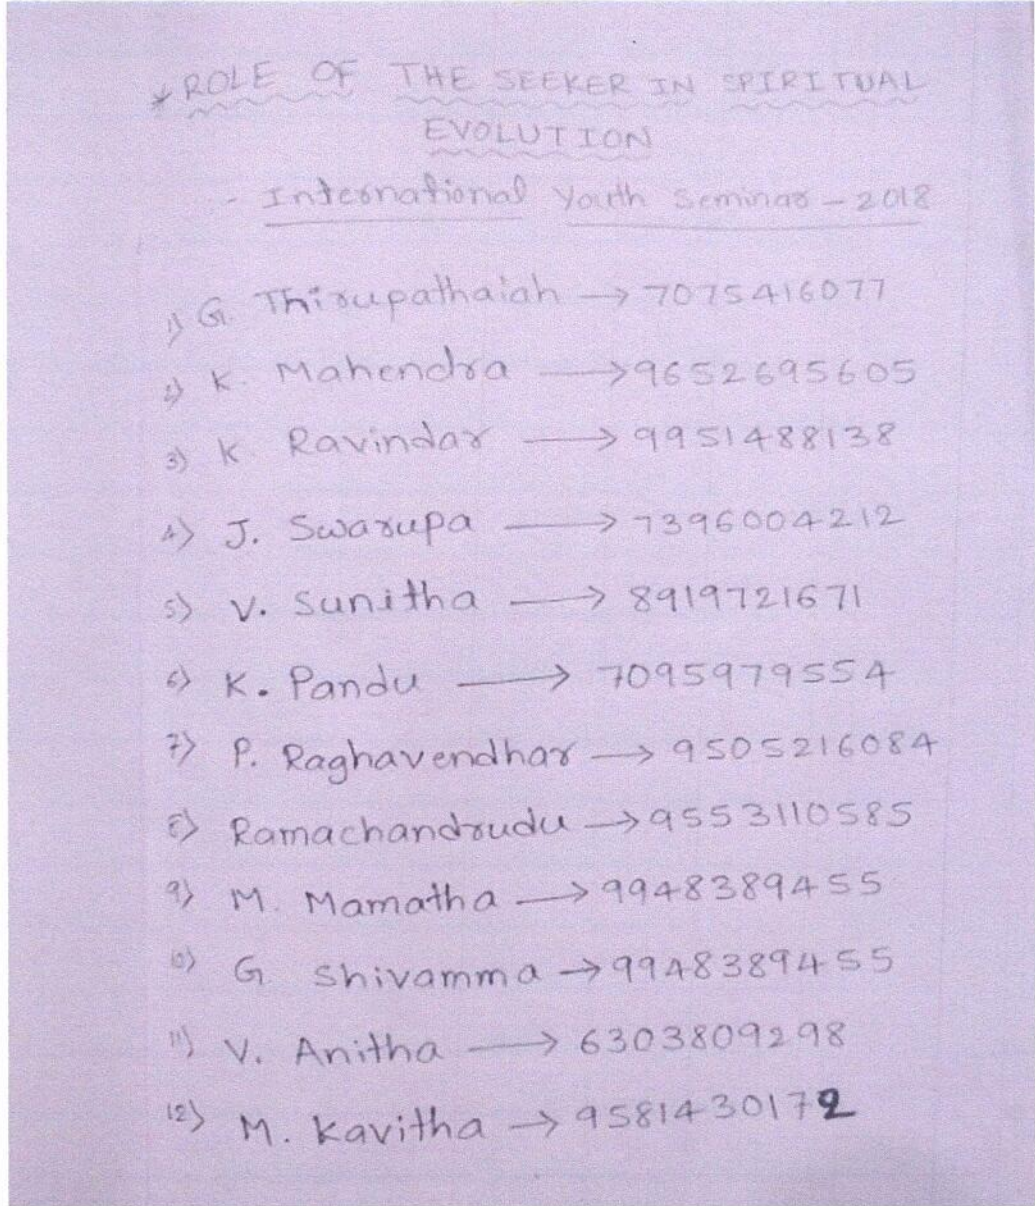 * ROLE OF THE SEEKER IN SPIRITUAL
EVOLUTION
- International Youth Seminar - 2018
1) G. Thirupathaiah → 7075416077
2) K. Mahendra → 9652695605
3) K Ravindar → 9951488138
4) J. Swarupa → 7396004212
5) V. Sunitha → 8919721671
6) K. Pandu → 7095979554
7) P. Raghavendhar → 9505216084
8) Ramachandrudu → 9553110585
9) M. Mamatha → 9948389455
10) G. Shivamma → 9948389455
11) V. Anitha → 6303809298
12) M. Kavitha → 9581430172